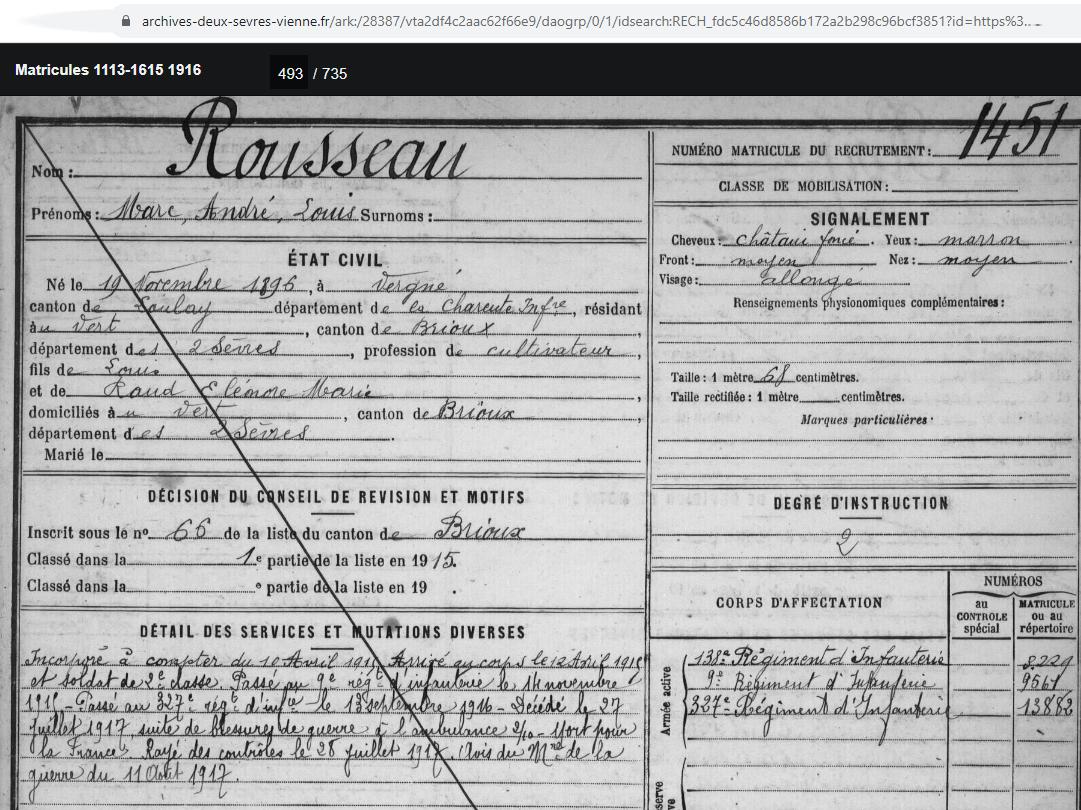 archives-deux-sevres-vienne.fr/ark:/28387/vta2df4c2aac62f66e9/daogrp/0/1/idsearch:RECH_fdc5c46d8586b172a2b298c96bcf3851?id=https%3...
Matricules 1113-1615 1916
493 / 735
Nom : Rousseau
Prénoms : Marc, André, Louis Surnoms :
ÉTAT CIVIL
Né le 19 Novembre 1896, à Vergné
canton de Loulay département de la Charente Infre, résidant
à u Vert, canton de Brioux,
département des 2 Sèvres, profession de cultivateur,
fils de Louis
et de Raud Eléonore Marie,
domiciliés à u Vert, canton de Brioux,
département des 2 Sèvres.
Marié le
DÉCISION DU CONSEIL DE REVISION ET MOTIFS
Inscrit sous le no 66 de la liste du canton de Brioux
Classé dans la 1e partie de la liste en 1915.
Classé dans la e partie de la liste en 19 .
DÉTAIL DES SERVICES ET MUTATIONS DIVERSES
Incorporé à compter du 10 Avril 1915 Arrivé au corps le 12 Avril 1915
et soldat de 2e classe. Passé au 9e régt d'infanterie le 14 novembre
1915 - Passé au 327e régt d'infie le 13 septembre 1916 - Décédé le 27
juillet 1917, suite de blessures de guerre à l'ambulance 2/10 - Mort pour
la France. Rayé des contrôles le 28 juillet 1917. Avis du Mre de la
guerre du 11 Août 1917.
NUMÉRO MATRICULE DU RECRUTEMENT : 1451
CLASSE DE MOBILISATION :
SIGNALEMENT
Cheveux : châtain foncé. Yeux : marron
Front : moyen Nez : moyen
Visage : allongé
Renseignements physionomiques complémentaires :
Taille : 1 mètre 68 centimètres.
Taille rectifiée : 1 mètre centimètres.
Marques particulières :
DEGRÉ D'INSTRUCTION
2
CORPS D'AFFECTATION
NUMÉROS
au CONTROLE spécial
MATRICULE ou au répertoire
Armée active
138e Régiment d'Infanterie 8229
9e Régiment d'Infanterie 9561
327e Régiment d'Infanterie 13882